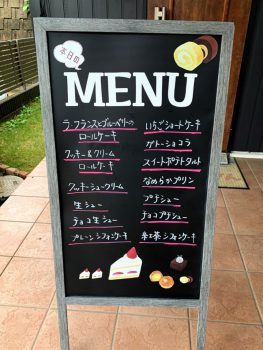 本日の
MENU
ラ・フランスとブルーベリーの
ロールケーキ
クッキー&クリーム
ロールケーキ
クッキーシュークリーム
生シュー
チョコ生シュー
プレーンシフォンケーキ
いちごショートケーキ
ガトーショコラ
スイートポテトタルト
なめらかプリン
プチシュー
チョコプチシュー
紅茶シフォンケーキ